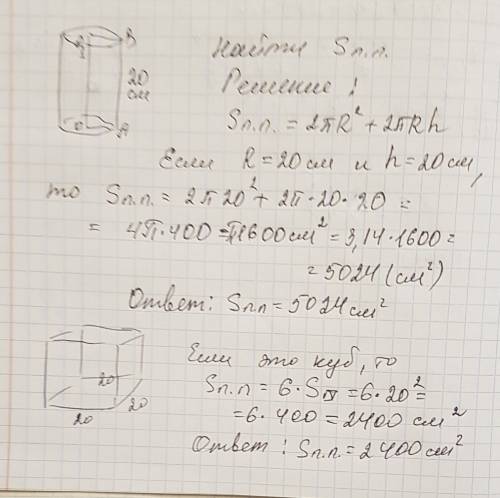 Найти Sп.п.
B
20
см
O A
Решение!
Sп.п. = 2πR² + 2πRh
Если R = 20 см и h = 20 см,
то Sп.п. = 2π20² + 2π·20·20 =
= 4π·400 = π1600 см² = 3,14·1600 =
= 5024 (см²)
Ответ: Sп.п = 5024 см²
Если это куб, то
Sп.п = 6·S = 6·20² =
= 6·400 = 2400 см²
Ответ: Sп.п. = 2400 см²
20
20
20